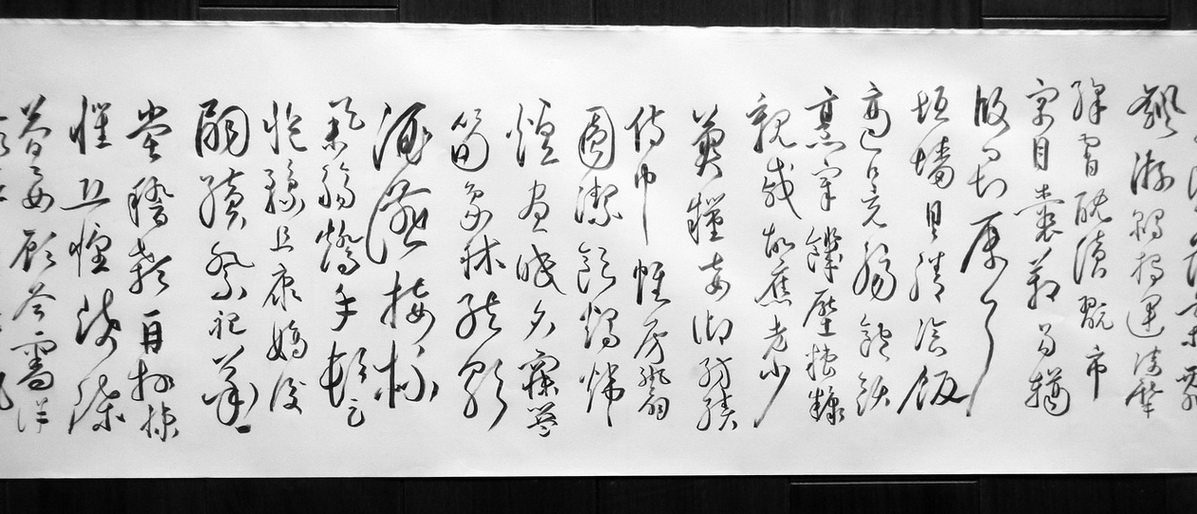 颻游鵾獨運凌摩
絳霄耽讀翫市
寓目囊箱易輶
攸畏屬耳
垣墻具膳飡飯
適口充腸飽飫
烹宰飢厭糟糠
親戚故舊老少
異糧妾御紡績
侍巾帷房紈扇
圓潔銀燭煒
煌晝眠夕寐藍
筍象床絃歌
酒讌接杯
舉觴矯手頓足
悅豫且康嫡後
嗣續祭祀蒸
嘗稽顙再拜悚
懼恐惶牋牒
簡要顧答審詳